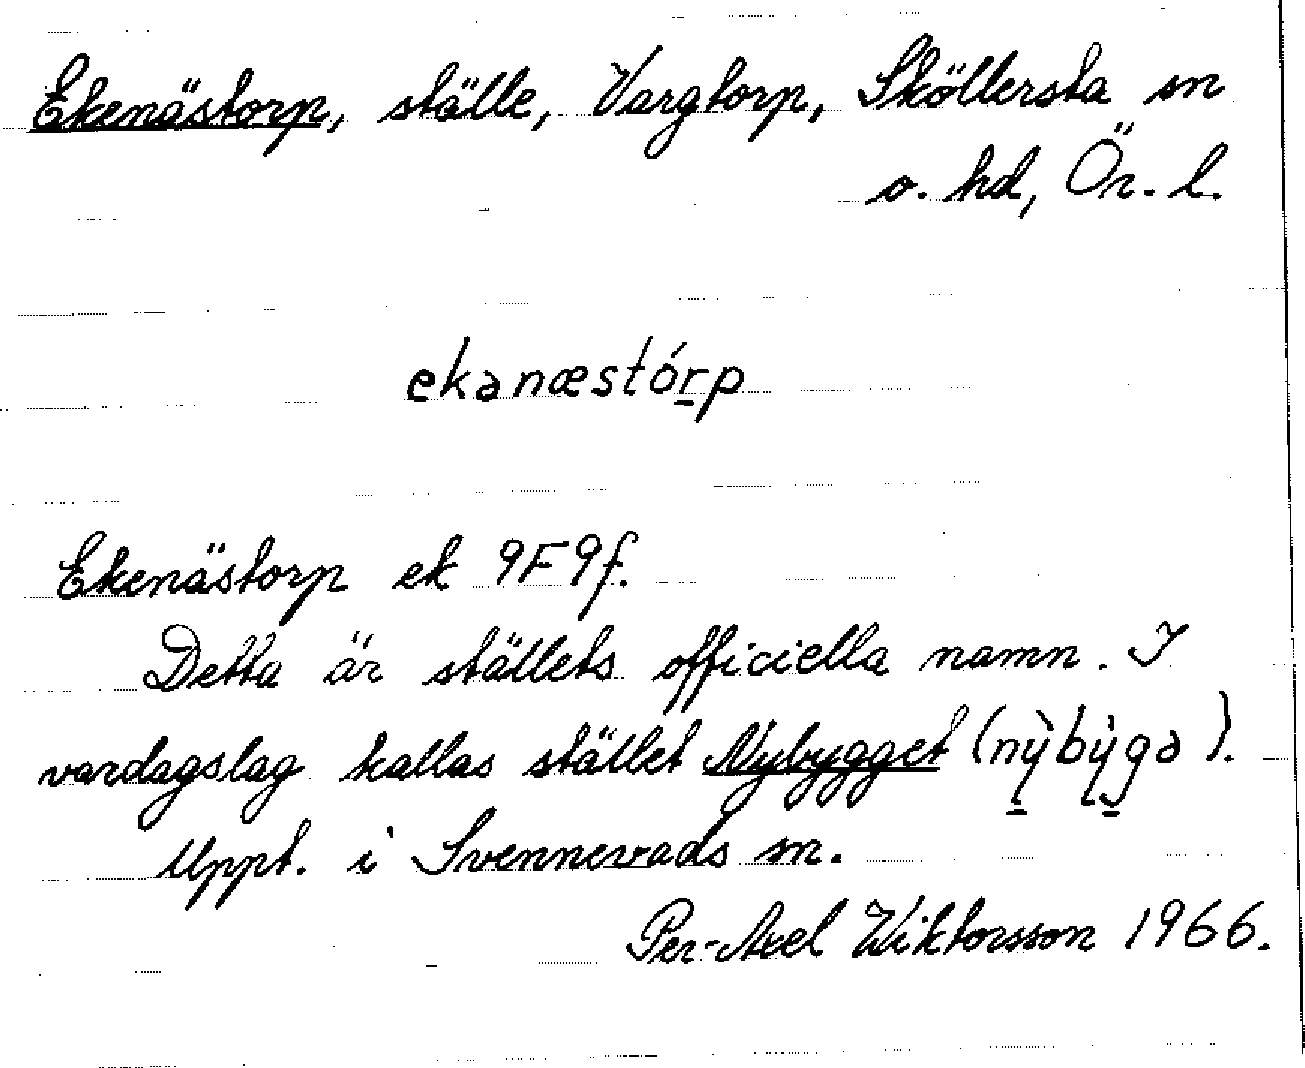 Ekenästorp, ställe, Vargtorp, Sköllersta sn
o. hd, Ör. l.
ekanæstórp
Ekenästorp ek 9F9f.
Detta är ställets officiella namn. I
vardagslag kallas stället Nybygget (nỳbỳgə).
Uppt. i Svennevads sn.
Per-Axel Wiktorsson 1966.